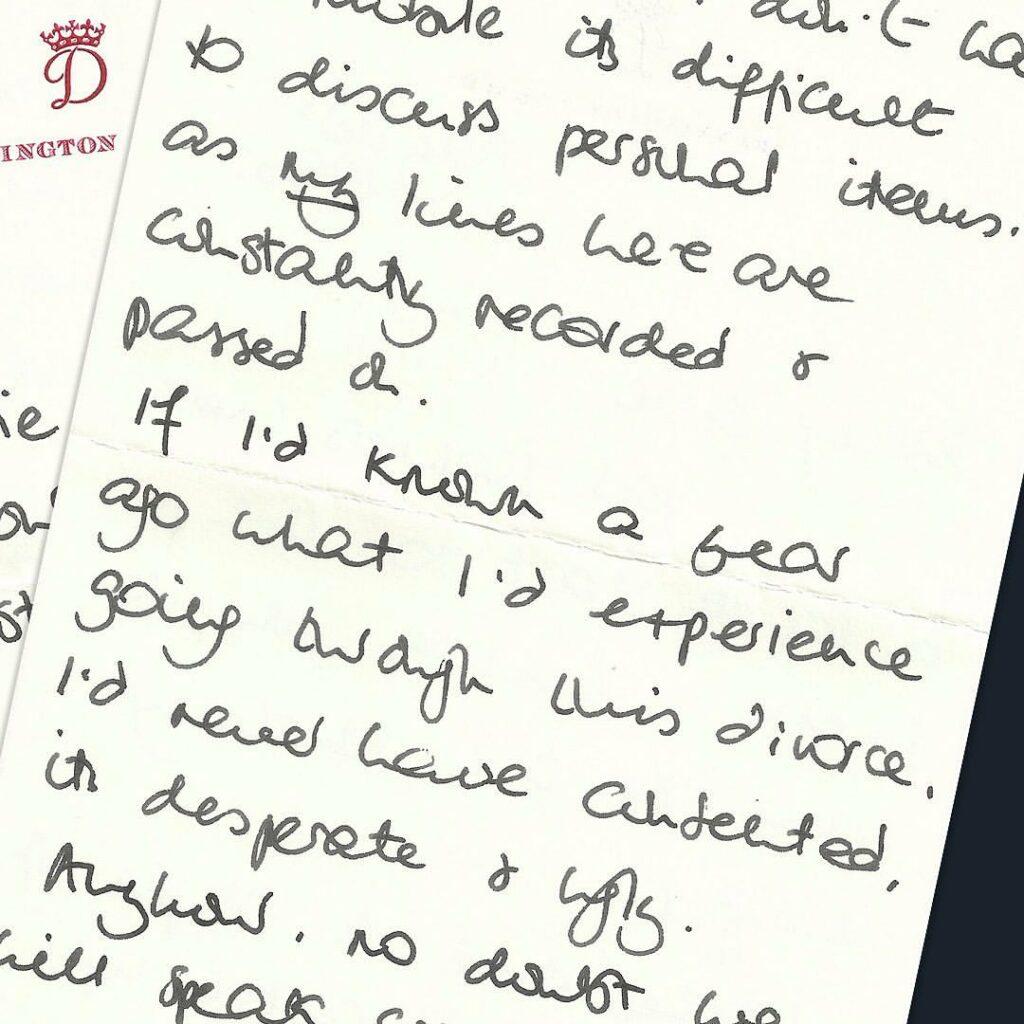 D
INGTON
don't ha
its difficult
to discuss personal items.
as my lines here are
constantly recorded &
passed on.
If I'd known a year
ago what I'd experience
going through this divorce,
I'd never have consented,
its desperate & ugly.
Anyhow, no doubt we
will speak